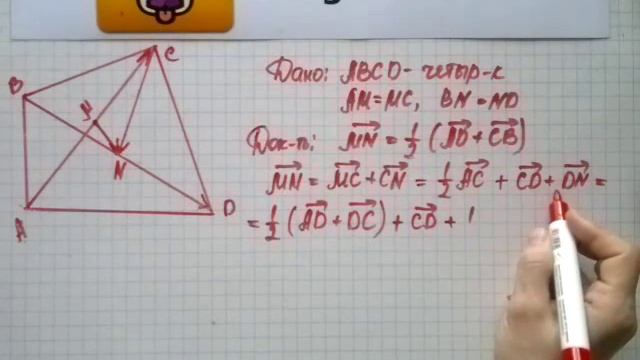 C
B
M
N
A
D
Дано: ABCD - четыр-к
AM = MC, BN = ND
Док-ть: MN = 1/2 (AD + CB)
MN = MC + CN = 1/2 AC + CD + DN =
= 1/2 (AD + DC) + CD +